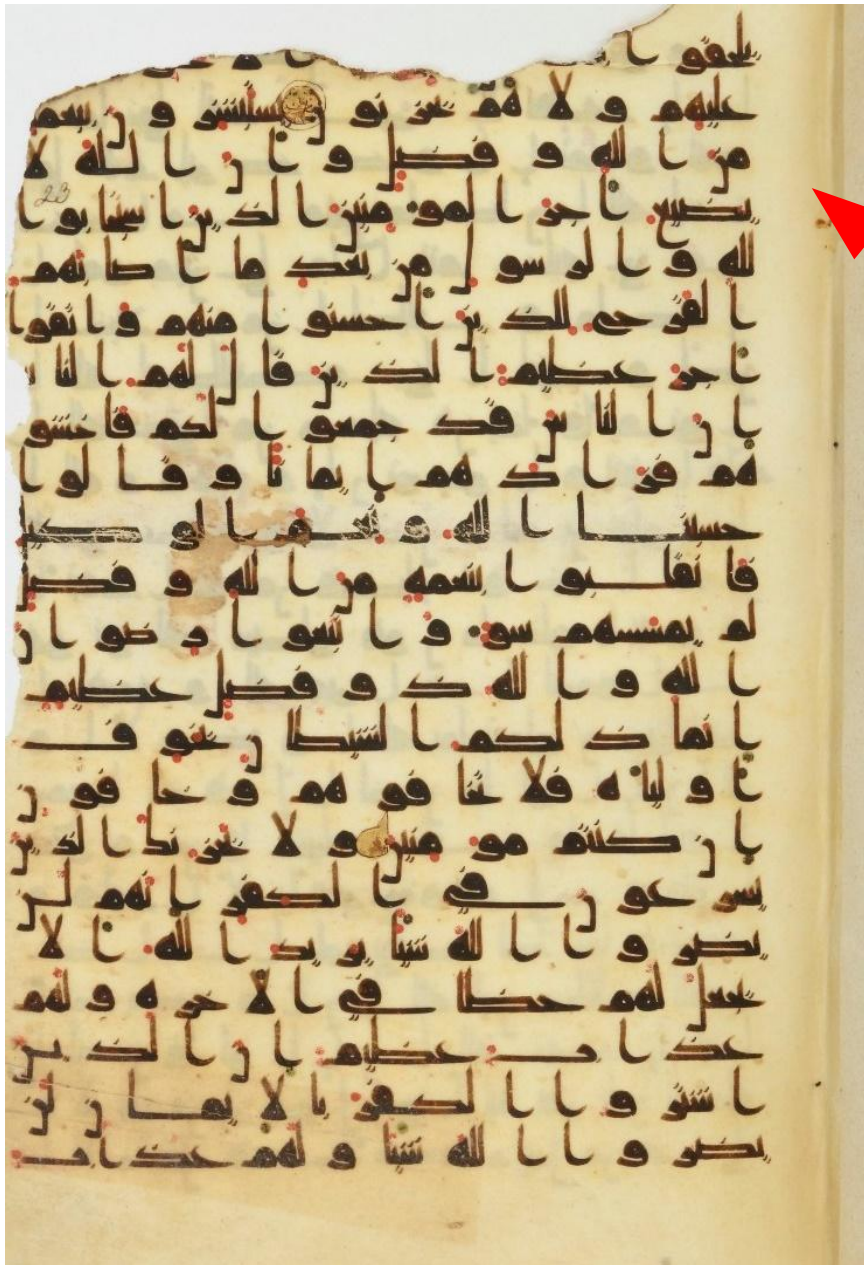 يلحقوا
عليهم ولا هم يحزنون يستبشرون بنعمه
من الله وفضل وان الله لا
23
يضيع اجر المومنين الذين استجابوا
لله والرسول من بعد ما اصابهم
القرح للذين احسنوا منهم واتقوا
اجر عظيم الذين قال لهم النا
ان الناس قد جمعوا لكم فاخشو
هم فزادهم ايمانا وقالوا
حسبنا الله ونعم الوكيل
فانقلبوا بنعمه من الله وفضل
لم يمسسهم سو واتبعوا رضوان
الله والله ذو فضل عظيم
انما ذلكم الشيطان يخوف
اولياه فلا تخافوهم وخافون
ان كنتم مومنين ولا يحزنك الذين
يسرعون في الكفر انهم لن
يضروا الله شيا يريد الله الا
يجعل لهم حظا في الاخره ولهم
عذاب عظيم ان الذين
اشتروا الكفر بالايمان لن
يضروا الله شيا ولهم عذاب